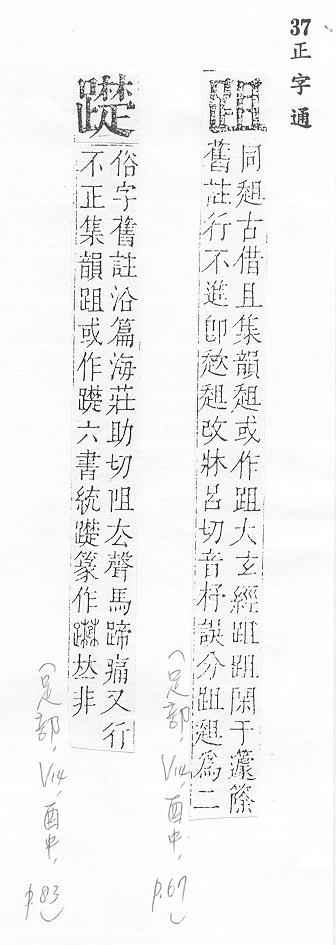 37正字通
跙
同趄古借且集韻趄或作跙太玄經跙跙閑于蘧篨
舊註行不進卽趑趄改牀呂切音杼誤分跙趄爲二
(足部, V14, 酉中, p.67)
䠂
俗字舊註沿篇海莊助切阻去聲馬蹄痛又行
不正集韻跙或作䠂六書統䠂篆作 𠀤非
(足部, V14, 酉中, p.83)